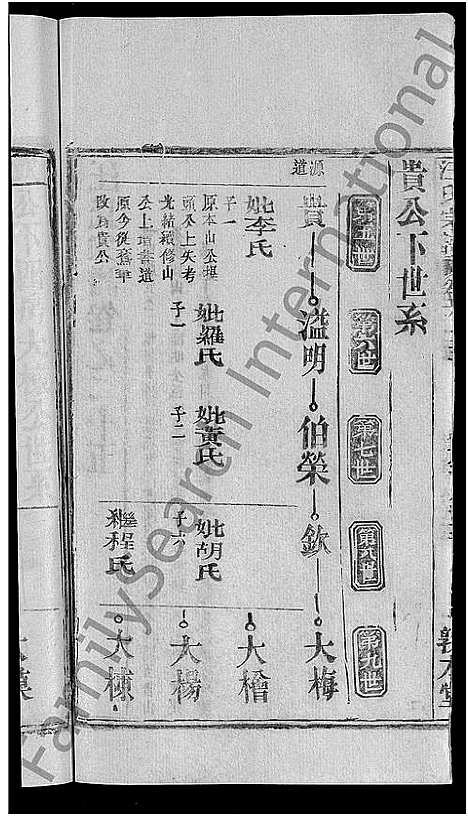 貴公下世系
第五世
第六世
第七世
第八世
第九世
源道
貴
溢明
伯榮
欽
大梅
妣李氏
子一
妣羅氏
子一
妣黃氏
子二
妣胡氏
子六
繼程氏
大檜
大楊
大楝
原本山公堪
頭及上失考
光緒續修山
公上墳書道
原今從舊筆
改為貴公
FamilySearch International